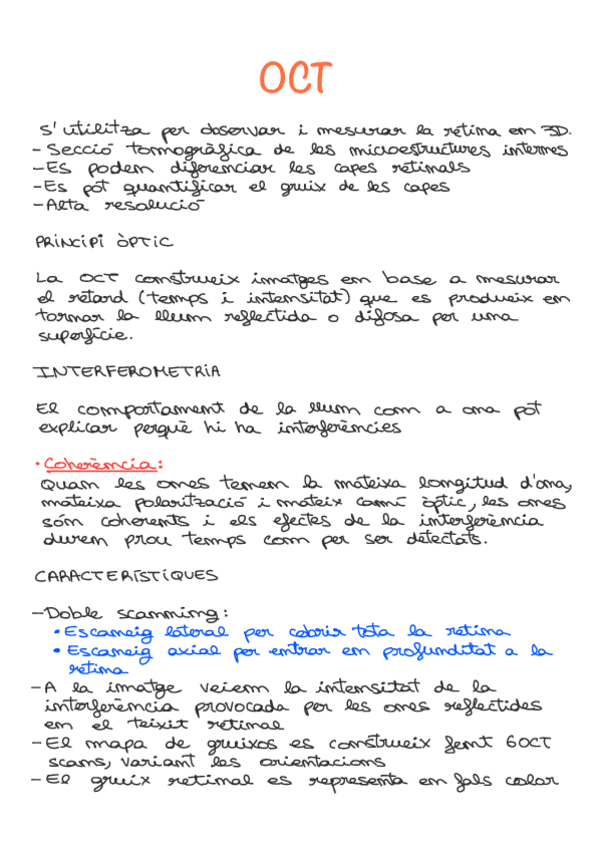 OCT
S'utilitza per observar i mesurar la retina em 3D.
- Secció tomogràfica de les microestructures internes
- Es podem diferenciar les capes retinals
- Es pot quantificar el gruix de les capes
- Alta resolució
PRINCIPI ÒPTIC
La OCT construeix imatges em base a mesurar
el retard (temps i intensitat) que es produeix em
tornar la llum reflectida o difosa per una
superfície.
INTERFEROMETRIA
El comportament de la llum com a ona pot
explicar perquè hi ha interferències
• Coherència:
Quan les ones tenen la mateixa longitud d'ona,
mateixa polarització i mateix camí òptic, les ones
són coherents i els efectes de la interferència
duren prou temps com per ser detectats.
CARACTERÍSTIQUES
- Doble scanning:
• Escaneig lateral per cobrir tota la retina
• Escaneig axial per entrar em profunditat a la
retina
- A la imatge veiem la intensitat de la
interferència provocada per les ones reflectides
em el teixit retinal
- El mapa de gruixos es construeix fent 6 OCT
scans, variant les orientacions
- El gruix retinal es representa em fals color